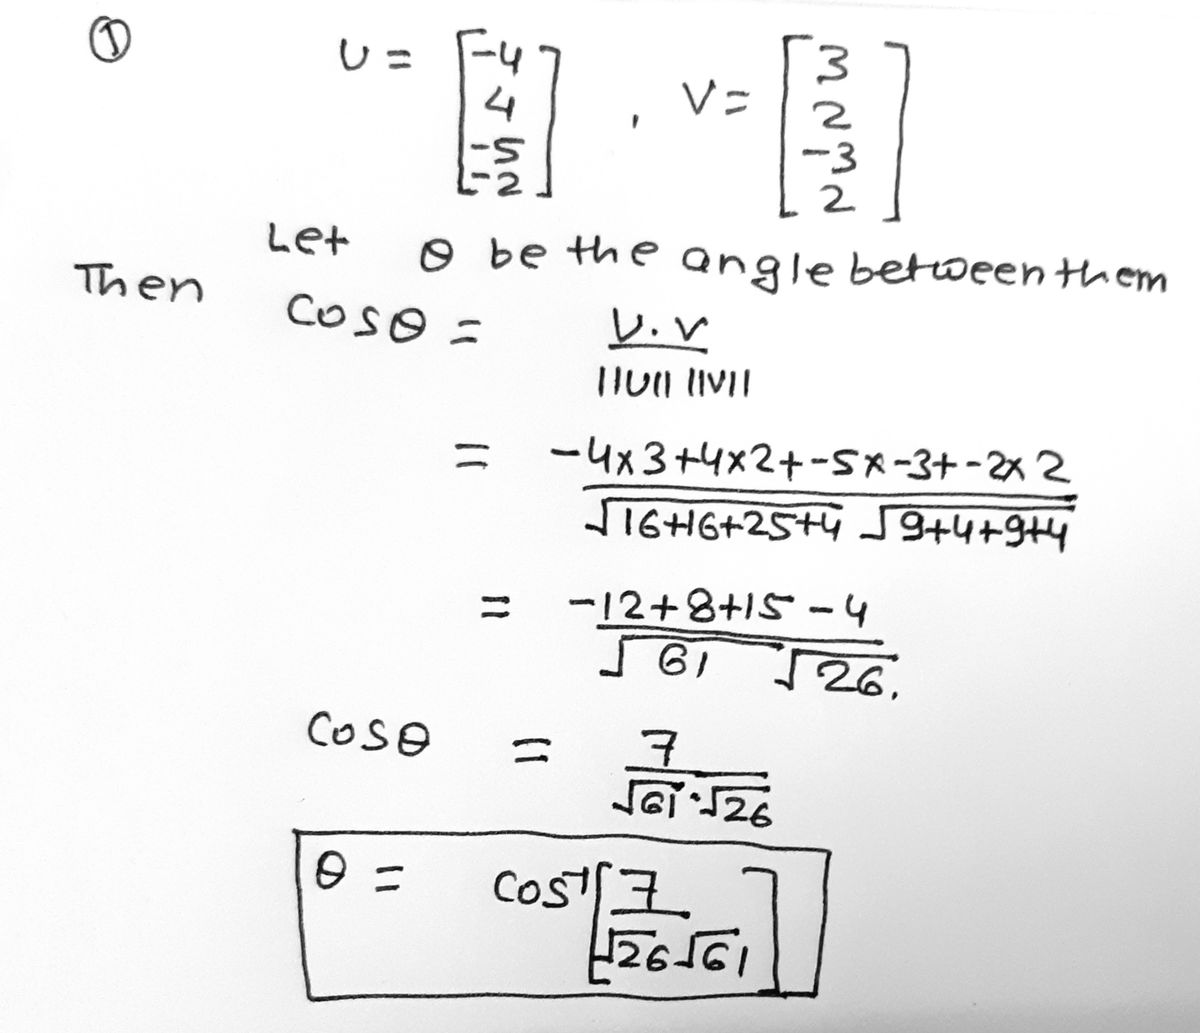 ①
U = [-4 4 -5 -2] , V = [3 2 -3 2]
Let θ be the angle between them
Then
Cosθ = U.V / ||U|| ||V||
= -4×3+4×2+-5×-3+-2×2 / √16+16+25+4 √9+4+9+4
= -12+8+15-4 / √61 √26.
Cosθ = 7 / √61·√26
θ = Cos⁻¹[7 / √26√61]